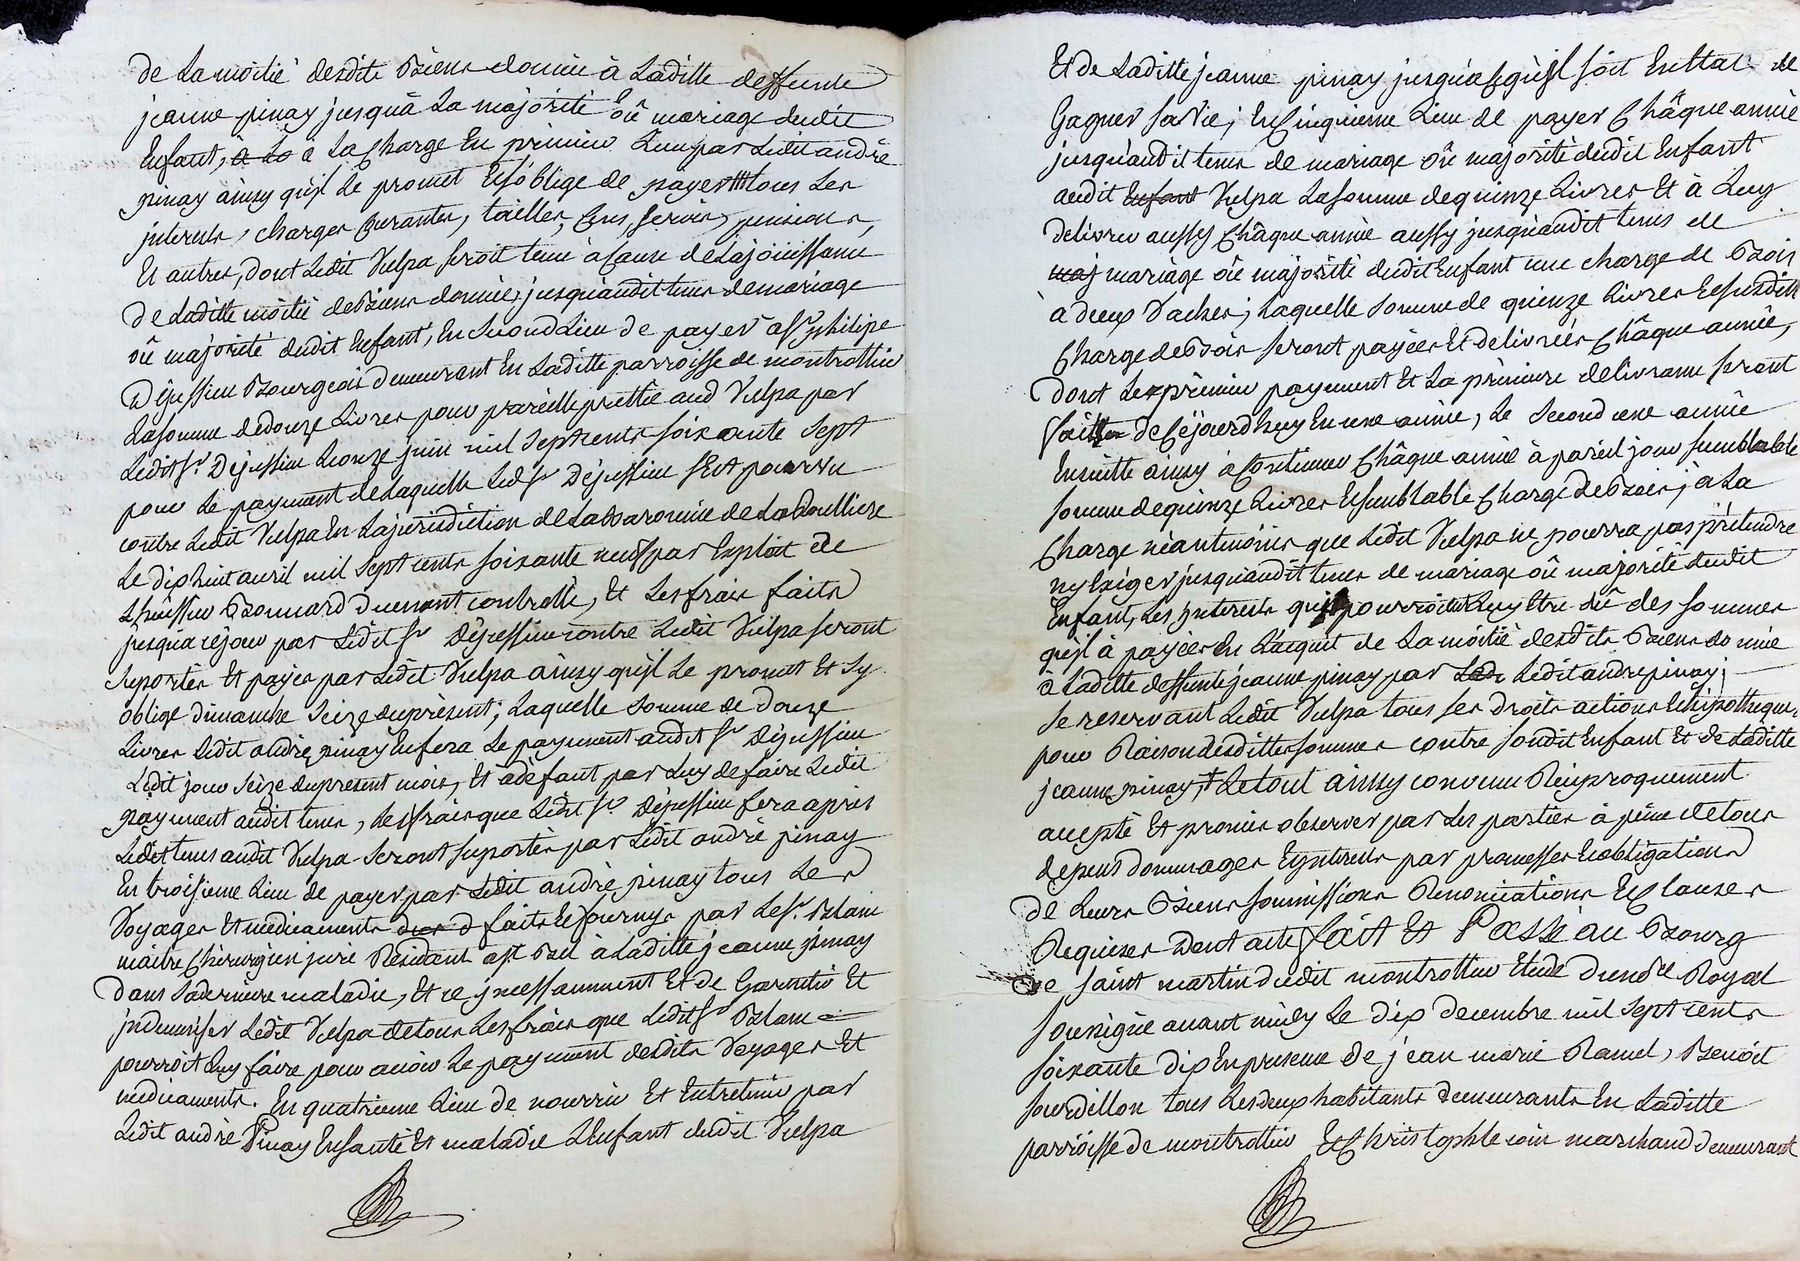 de La moitié desdits Biens donnée à Laditte deffunte
jeanne pinay jusquà La majorité oû mariage dudit
Enfant, à La Charge En premier Lieu par Ledit andré
pinay ainsy qu'jl Le promet Et s'oblige de payer tous Les
jnterests, charges Courantes, tailles, Cens, servis, pensions,
Et autres, dont Ledit Vulpa seroit tenu à Cause de Lajoüissance
de Laditte moitié de Biens donnée, jusquaudit tems de mariage
oû majorité dudit Enfant, En second Lieu de payer à sr. philipe
Déjussieu Bourgeois demeurant En Laditte parroisse de montrottier
La somme dedouze Livres pour pareille prettée aud Vulpa par
Ledit sr. Déjussieu Le onze juin mil sept cents soixante sept
pour Le payement de Laquelle Led sr Déjussieu s'Est pourvu
contre Ledit Vulpa En La jurisdiction de La Baronnie de
Le dix huit avril mil sept cents soixante neuf par Exploit de
L'huissier Bonnard duement controllé, Et Les frais faits
jusqua cejour par Ledit sr Déjussieu contre Ledit Vulpa seront
suportés Et payés par Ledit Vulpa ainsy qu'jl Le promet Et s'y
oblige dimanche seize duprésent; Laquelle somme de Douze
Livres Ledit andré pinay En fera Le payement audit sr Déjussieu
Ledit jour seize duprésent mois, Et à défaut par Luy de faire Ledit
payement audit tems, Les frais que Ledit sr. Déjussieu fera après
Ledit tems audit Vulpa seront suportés par Ledit andré pinay
En troisieme Lieu de payer par Ledit andré pinay tous Les
Voyages Et médicaments faits Et fournys par Le sr. Blanc
maitre Chirurgien juré Résidant à st Bel à Laditte jeanne pinay
Dans sa derniere maladie, Et ce jncessamment Et de Garantir Et
jndemniser Ledit Vulpa detous Les frais que Ledit sr Blanc
pourroit Luy faire pour avoir Le payement desdits Voyages Et
médicaments. En quatrieme Lieu de nourrir Et Entretenir par
Ledit andré Pinay En santé Et maladie L'Enfant dudit Vulpa
Et de Laditte jeanne pinay jusquà ce qu'jl soit En Etat de
Gagner sa Vie; En Cinquieme Lieu de payer Châque année
jusquaudit tems de mariage oû majorité dudit Enfant
audit Enfant Vulpa La somme dequinze Livres Et à Luy
delivrer aussy Châque année aussy jusquaudit tems de
maj mariage oû majorité dudit Enfant une charge de Bois
à deux Vaches; Laquelle somme de quinze Livres Et susditte
Charge de Bois seront payées Et delivrées Châque année,
dont Le premier payement Et La premiere delivrance seront
faits de Cejourd'huy En une année, Le second une année
Ensuitte ainsy à Continuer Châque année à pareil jour semblable
somme dequinze Livres Et semblable Charge de Bois; à La
Charge néantmoins que Ledit Vulpa ne pourra pas prétendre
ny Exiger jusquaudit tems de mariage oû majorité dudit
Enfant, Les jnterests qui pourroient Luy Etre dû des sommes
qu'jl à payées En L'acquit de La moitié desdits Biens donnée
à Laditte deffunte jeanne pinay par Led. Ledit andré pinay;
se reservant Ledit Vulpa tous ses droits actions Et hipotheques
pour Raison desdittes sommes contre sondit Enfant Et de Laditte
jeanne pinay, + Le tout ainsy convenu Réciproquement
accepté Et promis observer par Les parties à peine de tous
depens dommages Et jnterests par promesses Et obligations
de Leurs Biens soumissions Renonciations Et Clauses
Requises Dont acte fait Et Passé au Bourg
De saint martin dudit montrottier Etude du nore Royal
soussigné avant midy Le dix decembre mil sept cents
soixante dix En presence de jean marie Ramel, Benoit
sourdillon tous Les deux habitants demeurants En Laditte
parroisse de montrottier Et Christophle marchand demeurant